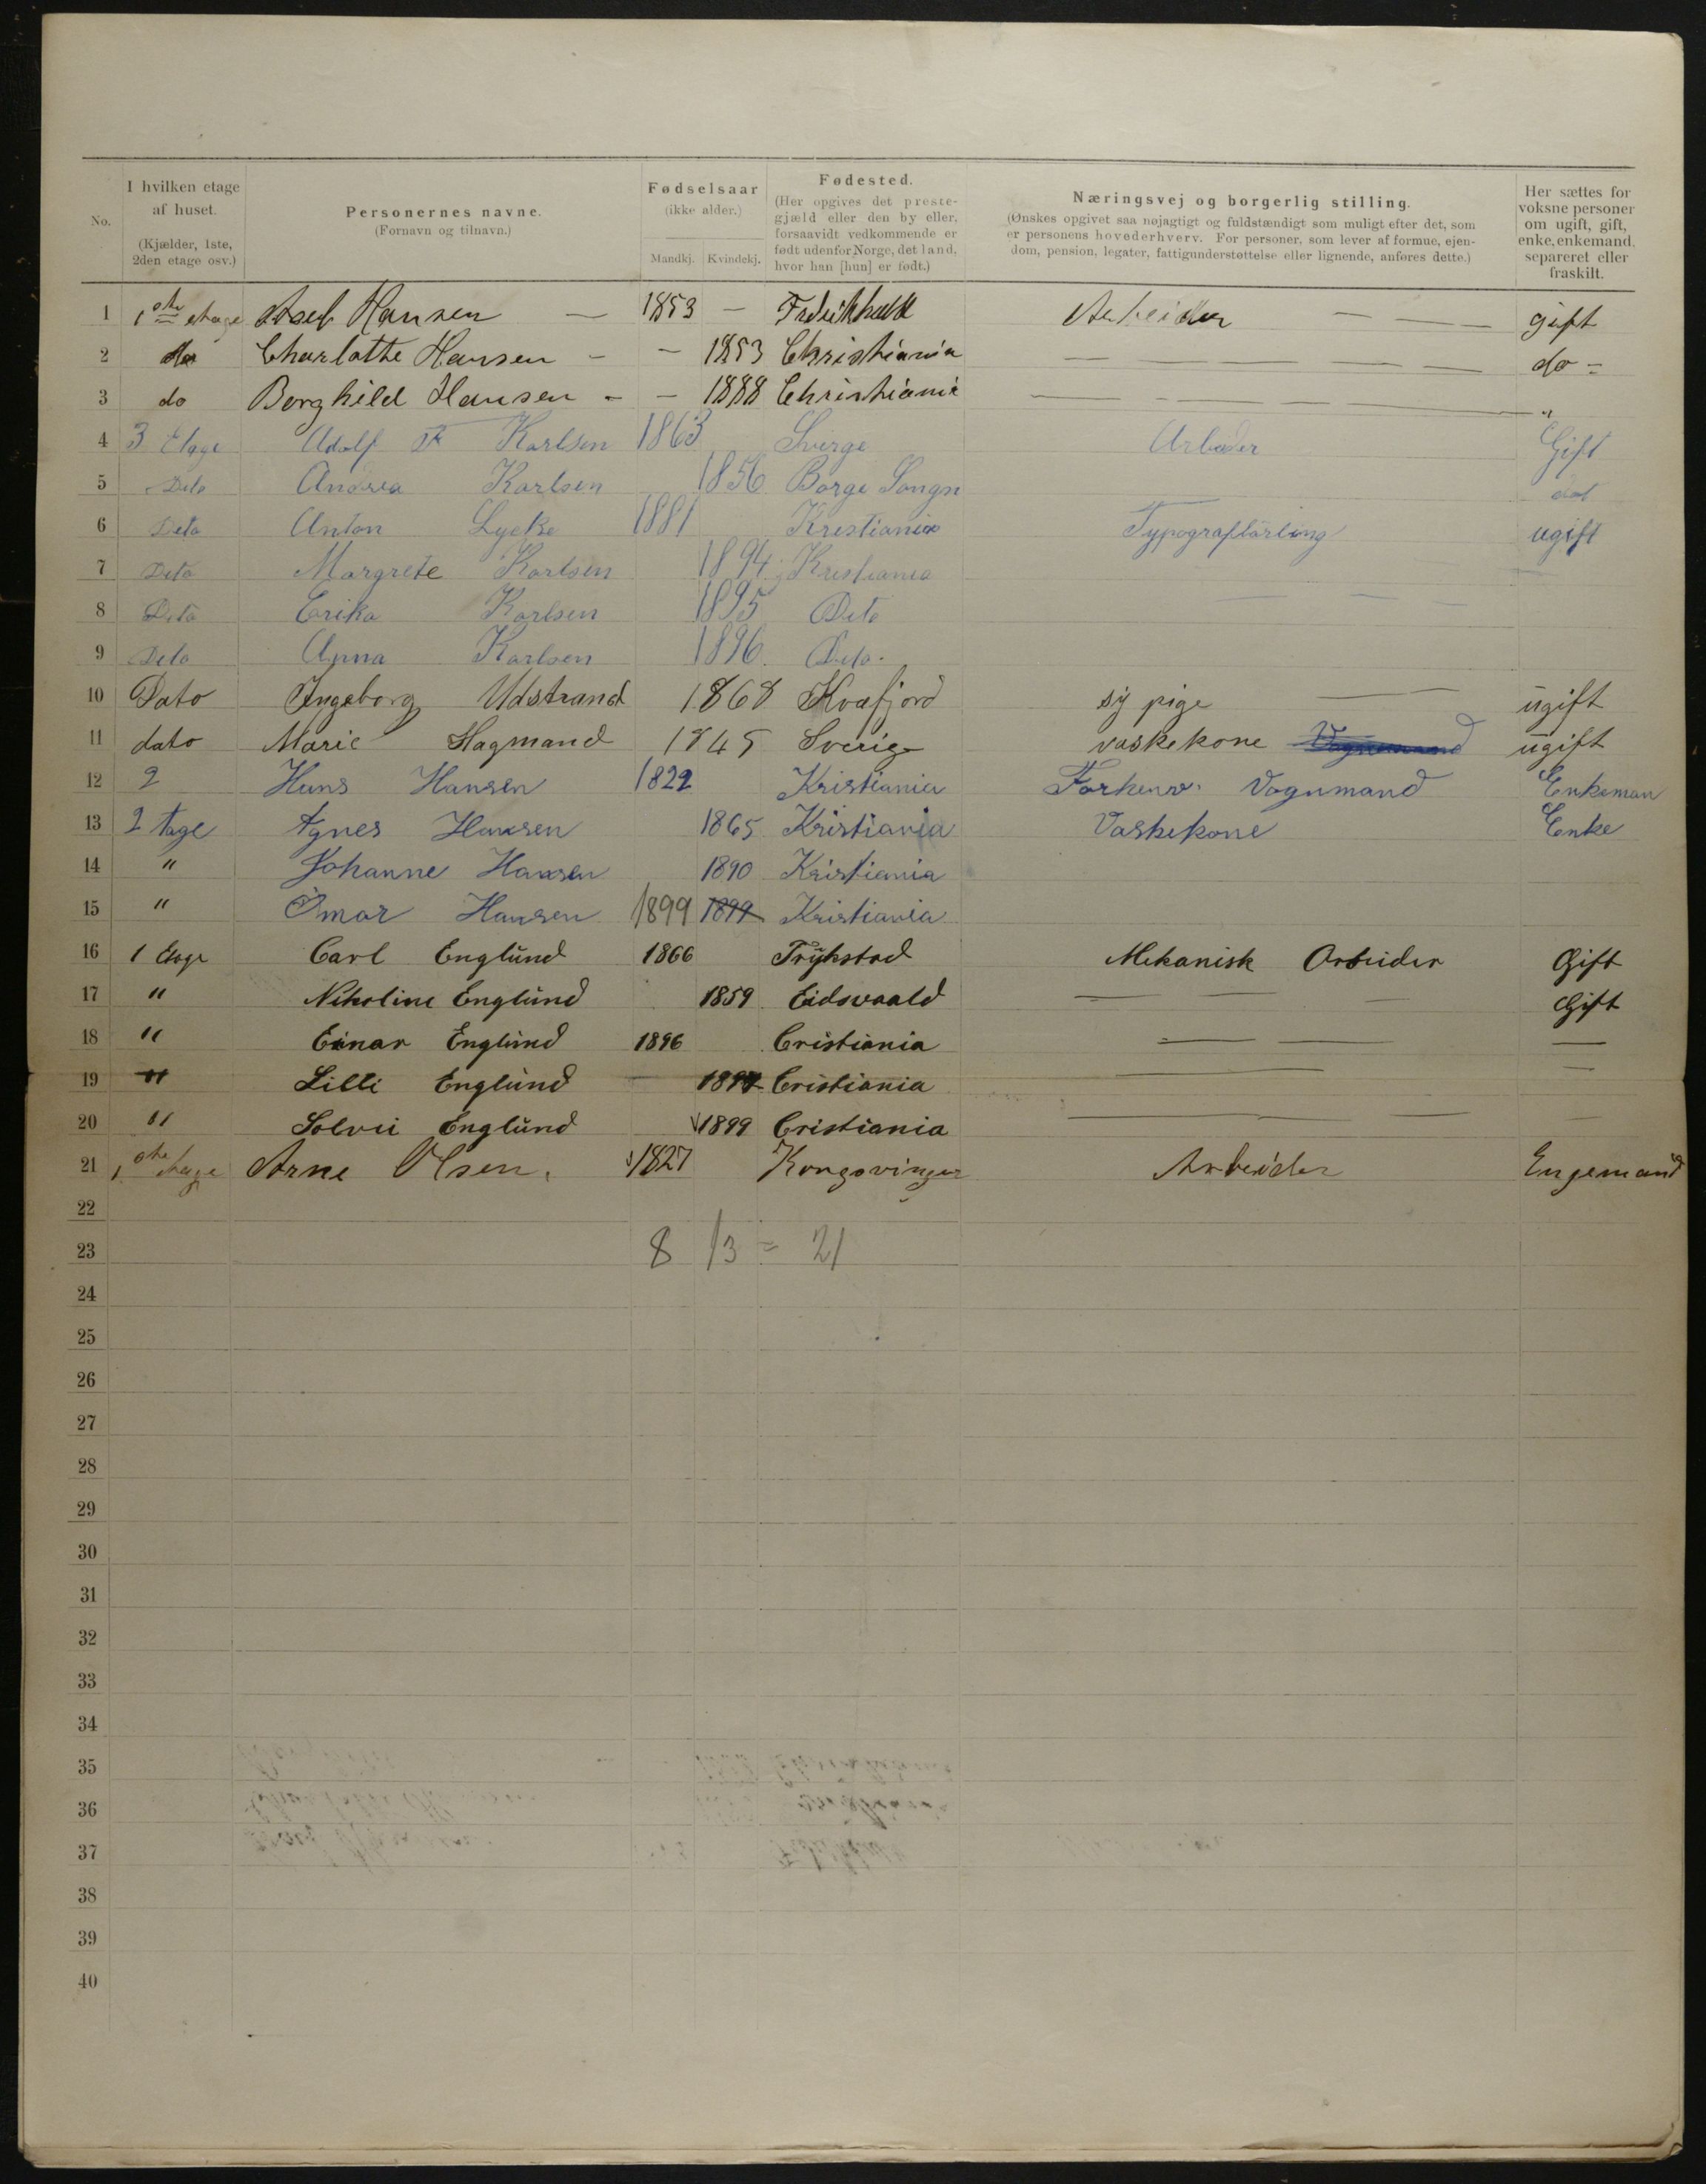 No. I hvilken etage af huset. (Kjælder, 1ste, 2den etage osv.) Personernes navne. (Fornavn og tilnavn.) Fødselsaar (ikke alder.) Mandkj. Kvindekj. Fødested. (Her opgives det prestegjæld eller den by eller, forsaavidt vedkommende er født udenfor Norge, det land, hvor han [hun] er født.) Næringsvej og borgerlig stilling. (Ønskes opgivet saa nøjagtigt og fuldstændigt som muligt efter det, som er personens hovederhverv. For personer, som lever af formue, ejendom, pension, legater, fattigunderstøttelse eller lignende, anføres dette.) Her sættes for voksne personer om ugift, gift, enke, enkemand, separeret eller fraskilt.
1 1ste etage Hansen — 1853 — Arbeider — — — gift
2 do Charlotte Hansen - - 1853 Christiania — — — — — do -
3 do Borghild Hansen - - 1888 Christiania — — — — "
4 3 Etage Adolf F Karlsen 1863 Sverge Arbeder Gift
5 Deto Andrea Karlsen 1856 Borge Songn
6 Deto Anton Lycke 1881 Krestiania Typograflärling ugift
7 Deto Margrete Karlsen 1894 Kristiania
8 Deto Erika Karlsen 1895 Deto — — —
9 Deto Anna Karlsen 1896. Deto.
10 Dato Ingeborg Udstrand 1868 Kvæfjord sy pige — — ugift
11 dato Marie Hagmand 1845 Sverige vaskekone Vognmand ugift
12 2 Hans Hansen 1822 Kristiania Forhenv. Vognmand Enkeman
13 2 tage Agnes Hansen 1865 Kristiania Vaskekone Enke
14 " Johanne Hansen 1890 Kristiania
15 " Omar Hansen 1899 1899 Kristiania
16 1 Etage Carl Englund 1866 Trykstad Mekanisk Arbeider Gift
17 " Nikoline Englund 1859 Eidsvaald — — — Gift
18 " Einar Englund 1896 Cristiania — — —
19 " Lilli Englund — 1897 Cristiania — —
20 " Solvei Englund 1899 Cristiania — — —
21 1ste etage Arne Olsen. 1827 Kongsvinger Arbeider Engemand
22
23 8 13 = 21
24
25
26
27
28
29
30
31
32
33
34
35
36
37
38
39
40